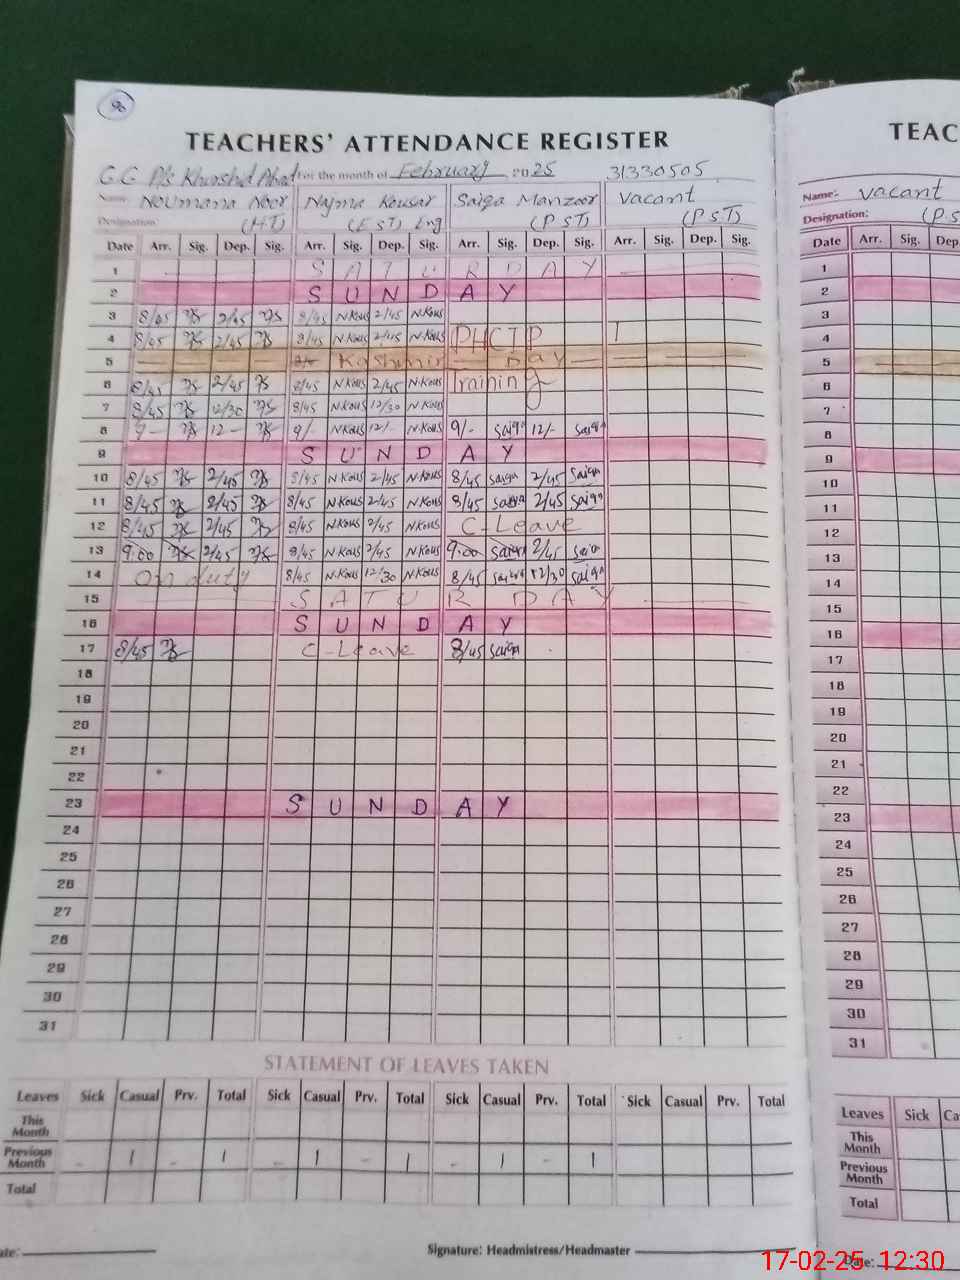 90
TEACHERS' ATTENDANCE REGISTER
G.G P/s Khurshid Abad For the month of February 2025 31330505
Name: Noumana Noor Najma Kousar Saiqa Manzoor Vacant
Designation: (HT) (EST) Eng (PST) (PST)
Date Arr. Sig. Dep. Sig. Arr. Sig. Dep. Sig. Arr. Sig. Dep. Sig. Arr. Sig. Dep. Sig.
1 SATURDAY
2 SUNDAY
3 8/45 2/45 8/45 N.Kous 2/45 N.Kous
4 8/45 2/45 8/45 N.Kous 2/45 N.Kous PHCIP
5 Kashmir Day
6 8/45 2/45 8/45 N.Kous 2/45 N.Kous Training
7 8/45 12/30 8/45 N.Kous 12/30 N.Kous
8 9/- 12- 9/- N.Kous 12/- N.Kous 9/- Saiqa 12/- Saiqa
9 SUNDAY
10 8/45 2/45 8/45 N.Kous 2/45 N.Kous 8/45 Saiqa 2/45 Saiqa
11 8/45 2/45 8/45 N.Kous 2/45 N.Kous 8/45 Saiqa 2/45 Saiqa
12 8/45 2/45 8/45 N.Kous 2/45 N.Kous C-Leave
13 9.00 2/45 8/45 N.Kous 2/45 N.Kous 9.00 Saiqa 2/45 Saiqa
14 On duty 8/45 N.Kous 12/30 N.Kous 8/45 Saiqa 12/30 Saiqa
15 SATURDAY
16 SUNDAY
17 8/45 C-Leave 8/45 Saiqa
18
19
20
21
22
23 SUNDAY
24
25
26
27
28
29
30
31
STATEMENT OF LEAVES TAKEN
Leaves Sick Casual Prv. Total Sick Casual Prv. Total Sick Casual Prv. Total Sick Casual Prv. Total
This Month
Previous Month - 1 - 1 - 1 - 1 - 1 - 1
Total
ate:
Signature: Headmistress/Headmaster
TEAC
Name: Vacant
Designation: (PS
Date Arr. Sig. Dep
1
2
3
4
5
6
7
8
9
10
11
12
13
14
15
16
17
18
19
20
21
22
23
24
25
26
27
28
29
30
31
Leaves Sick Ca
This Month
Previous Month
Total
Date:
17-02-25 12:30